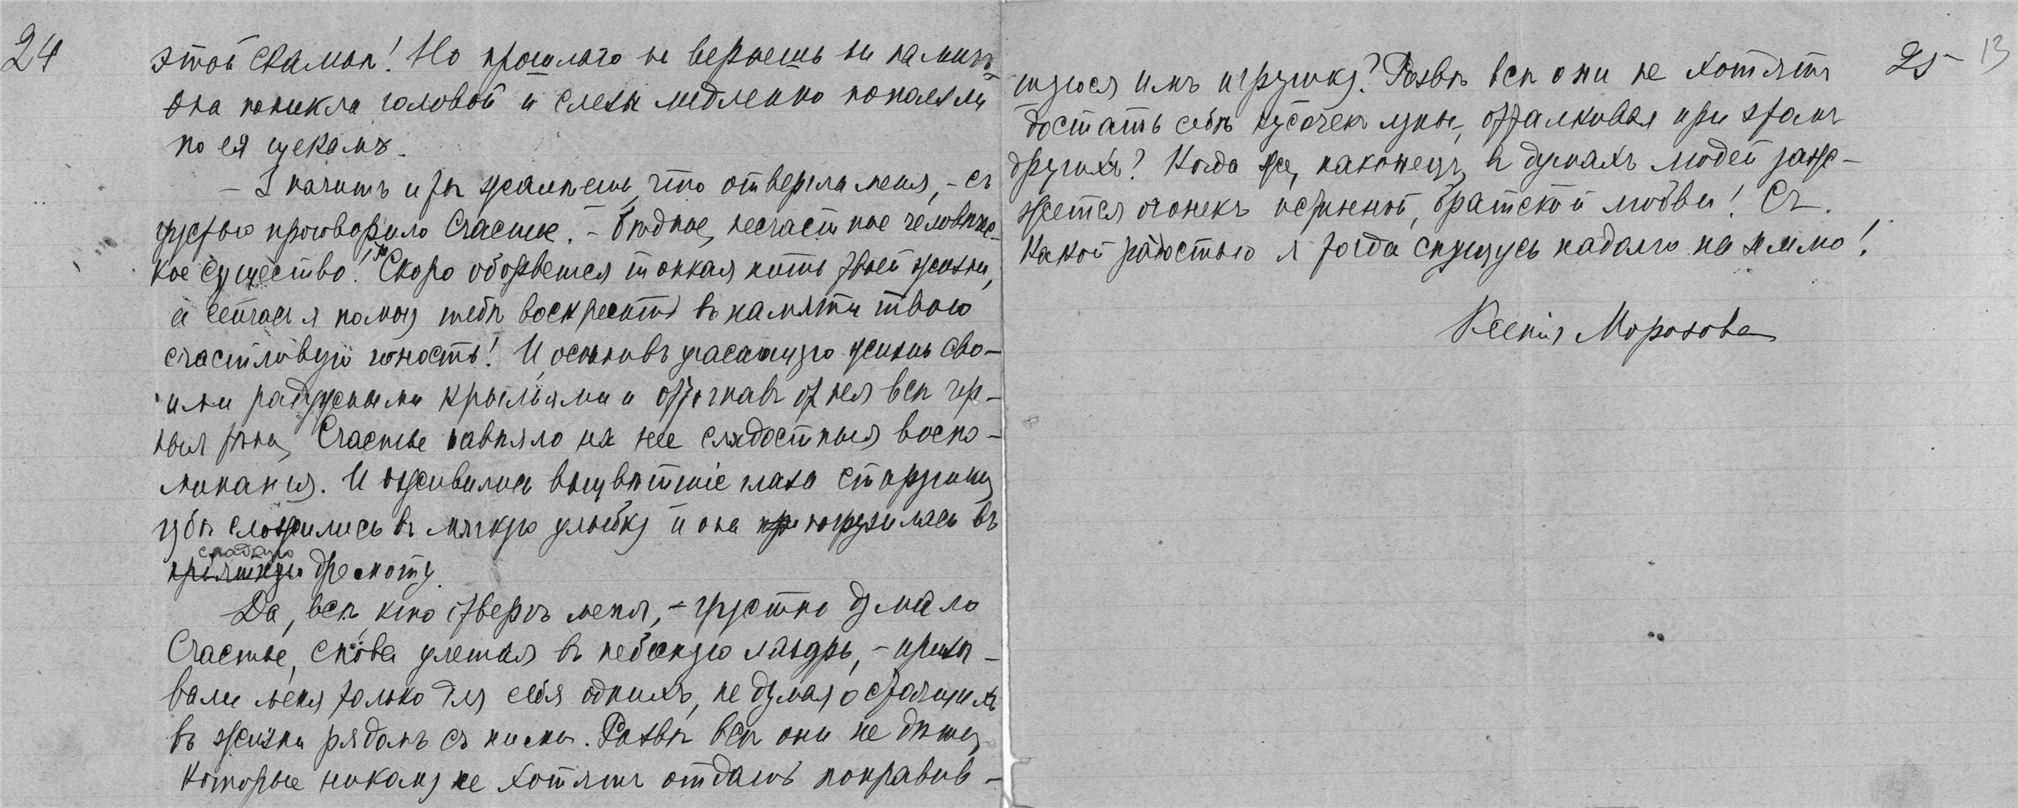 24
этой скамьѣ! Но прошлаго не вернешь ни на мигъ
Она поникла головой и слезы медленно поползли
по ея щекамъ.
— Значитъ и ты жалѣешь, что отвергла меня, – съ
грустью проговорило Счастье. – Бѣдное, несчастное человѣче-
кое существо! Скоро оборвется тонкая нить твоей жизни,
и сейчасъ я помогу тебѣ воскресить въ памяти твою
счастливую юность! И, осѣнивъ угасающую жизнь сво-
ими радужными крыльями и отогнавъ отъ нея всѣ чер-
ныя тѣни, Счастье навѣяло на нее сладостныя воспо-
минанія. И оживились выцвѣтшіе глаза старушки,
губы сложились въ мягкую улыбку и она погрузилась въ
сладкую
пріятную дремоту.
Да, всѣ, кто отвергъ меня, – грустно думало
Счастье, снова улетая въ небесную лазурь, – призы-
вали меня только для себя однихъ, не думая о стоящихъ
въ жизни рядомъ съ ними. Развѣ всѣ они не дѣти,
которые никому не хотятъ отдать понравив-
25 13
шуюся имъ игрушку? Развѣ всѣ они не хотятъ
достать себѣ кусочекъ луны, отталкивая при этомъ
другихъ? Когда же, наконецъ, въ душахъ людей заж-
жется огонекъ истинной, братской любви! Съ
какой радостью я тогда спущусь надолго на землю!
Ксенія Морозова